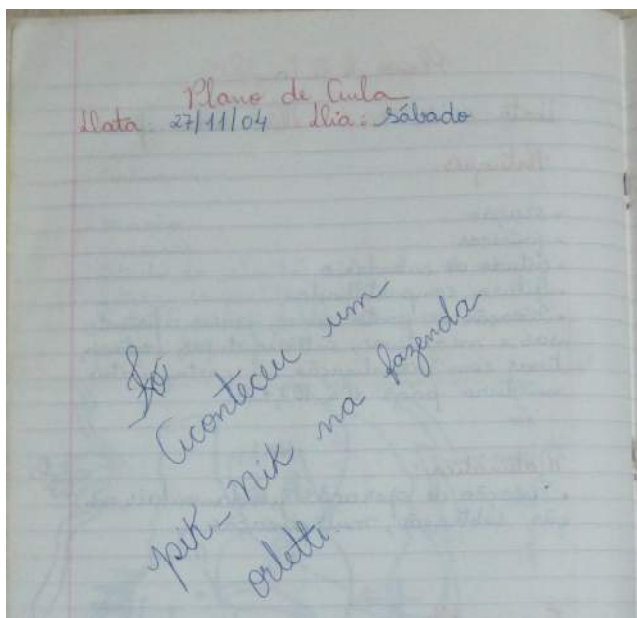 Plano de Aula
Data: 27/11/04 Dia: sábado
Aconteceu um
pik-nik na fazenda
orletti.